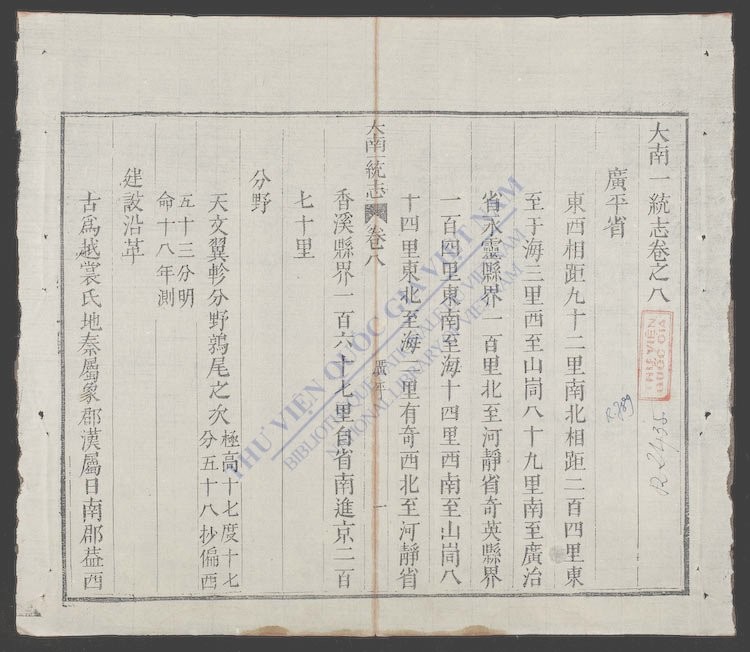 大南一統志卷之八
廣平省
東西相距九十二里南北相距二百四里東
至于海三里西至山峝八十九里南至廣治
省永靈縣界一百里北至河靜省奇英縣界
一百四里東南至海十四里西南至山峝八
十四里東北至海二里有奇西北至河靜省
大南一統志 卷八 廣平 一
香溪縣界一百六十七里自省南進京二百
七十里
分野
天文翼軫分野鶉尾之次極高十七度十七
分五十八抄偏西
五十三分明
命十八年測
建設沿革
古爲越裳氏地秦屬象郡漢屬日南郡葢西
THƯ VIỆN QUỐC GIA VIỆT NAM
BIBLIOTHÈQUE NATIONALE DU VIETNAM
NATIONAL LIBRARY OF VIETNAM
THƯ VIỆN
QUỐC GIA
R.789
R 2435